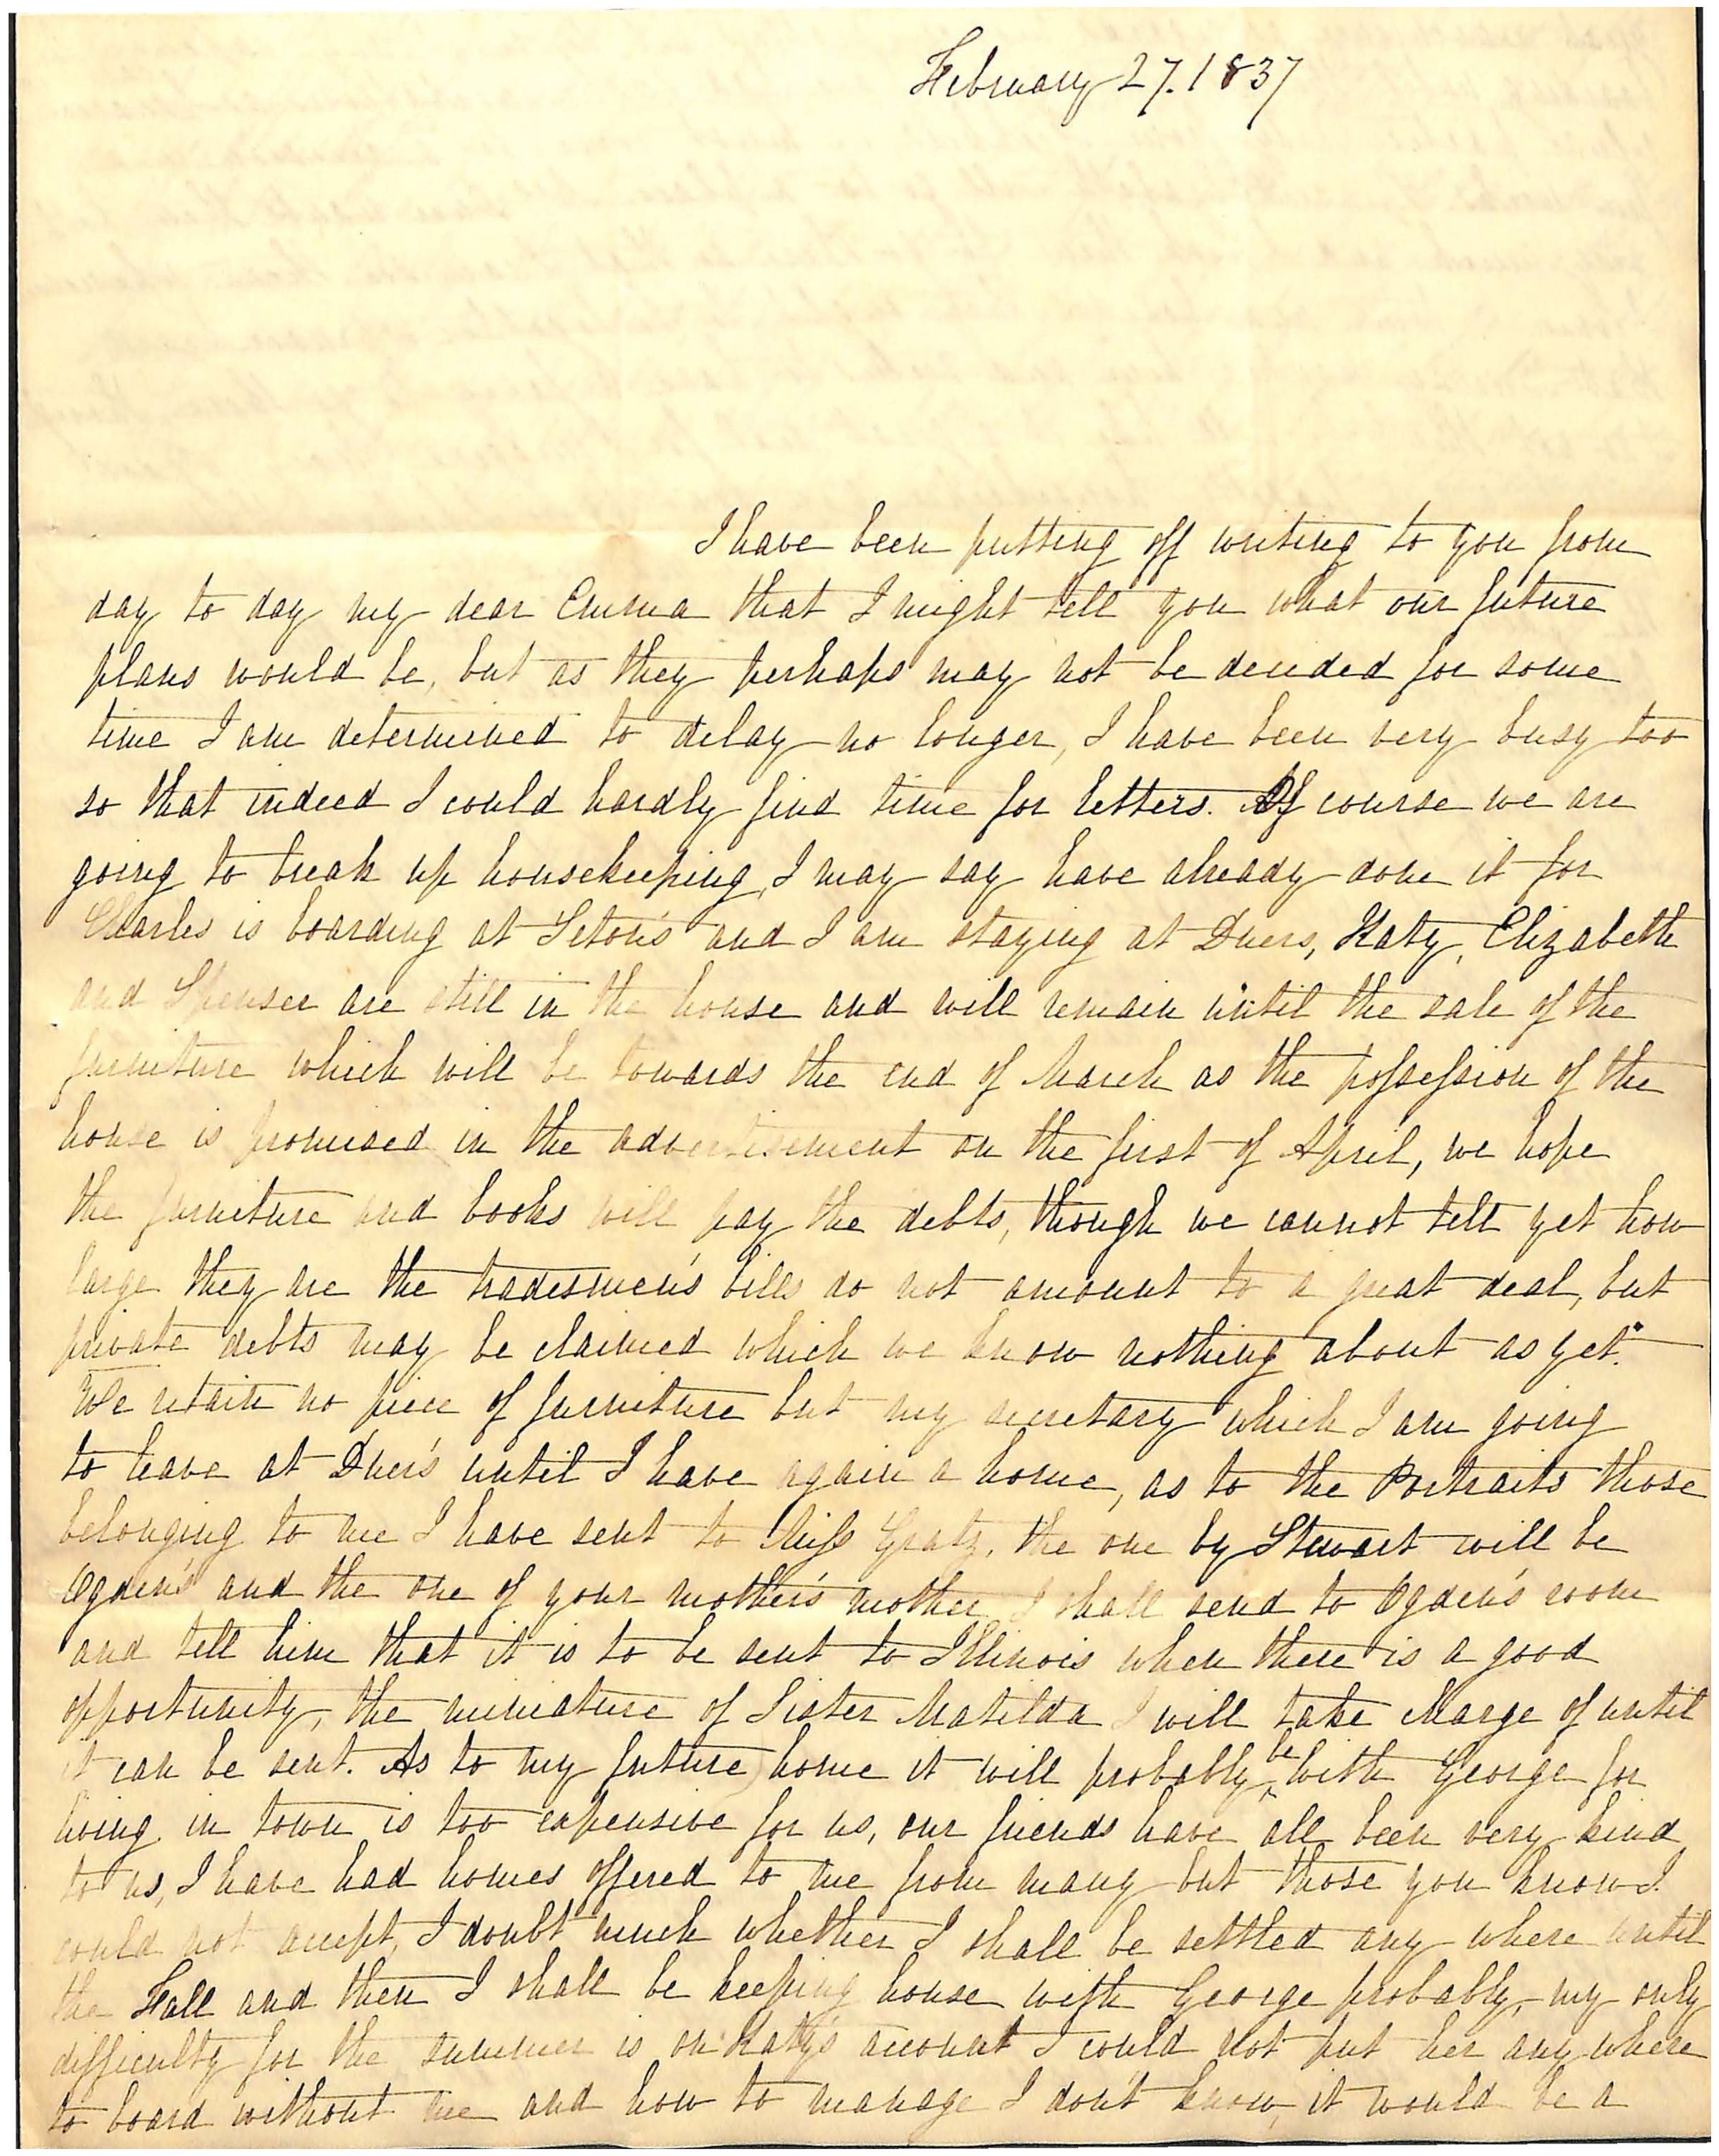 February 27. 1837
I have been putting off writing to you from
day to day my dear Emma that I might tell you what our future
plans would be, but as they perhaps may not be decided for some
time I am determined to delay no longer, I have been very busy too
so that indeed I could hardly find time for letters. Of course we are
going to break up housekeeping, I may say have already done it for
Charles is boarding at Seton's and I am staying at Duers, Katy, Elizabeth
and Spenser are still in the house and will remain until the sale of the
furniture which will be towards the end of March as the possession of the
house is promised in the advertisement on the first of April, we hope
the furniture and books will pay the debts, though we cannot tell yet how
large they are the tradesmen's bills do not amount to a great deal, but
private debts may be claimed which we know nothing about as yet.
We retain no piece of furniture but my secretary which I am going
to leave at Duer's until I have again a home, as to the Portraits those
belonging to me I have sent to Miss Gratz, the one by Stewart will be
Ogden's and the one of your mother's mother I shall send to Ogden's room
and tell him that it is to be sent to Illinois when there is a good
opportunity, the miniature of Sister Matilda I will take charge of until
it can be sent. As to my future home it will probably be with George for
living in town is too expensive for us, our friends have all been very kind
to us, I have had homes offered to me from many but those you know I
could not accept, I doubt much whether I shall be settled any where until
the Fall and then I shall be keeping house with George probably, my only
difficulty for the summer is on Katy's account I could not put her any where
to board without me and how to manage I don't know, it would be a